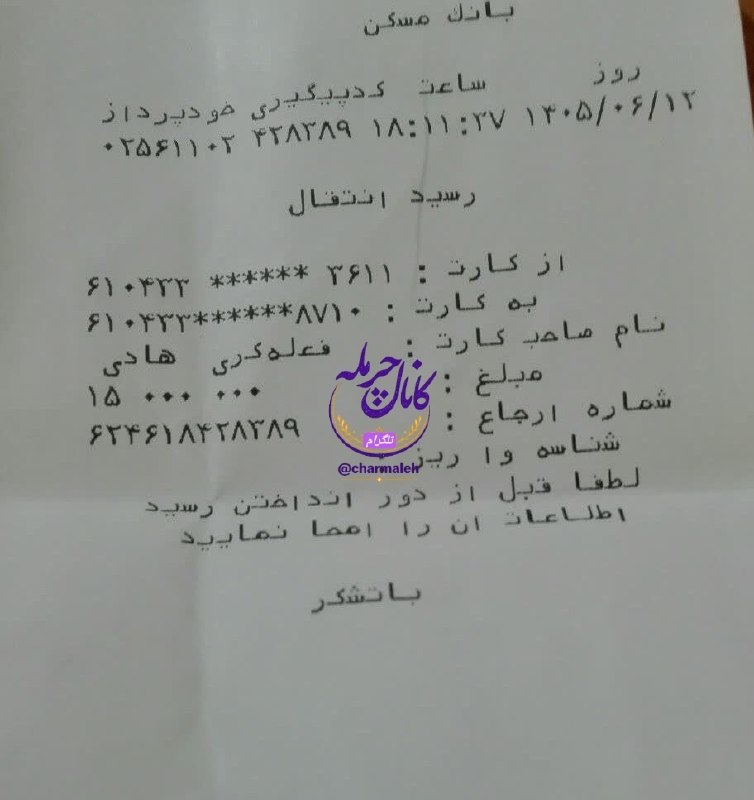 بانک مسکن
روز ساعت کدپیگیری خودپرداز
۱۴۰۵/۰۶/۱۲ ۱۸:۱۱:۲۷ ۴۲۸۳۸۹ ۰۲۵۶۱۱۰۲
رسید انتقال
از کارت : ۳۶۱۱ ****** ۶۱۰۴۳۳
به کارت : ۸۷۱۰******۶۱۰۴۳۳
نام صاحب کارت : فعله‌کری هادی
مبلغ : ۱۵ ۰۰۰ ۰۰۰
شماره ارجاع : ۶۲۴۶۱۸۴۲۸۳۸۹
شناسه واریز
لطفا قبل از دور انداختن رسید
اطلاعات ان را امحا نمایید
باتشکر
کانال چرمله
تلگرام
@charmaleh